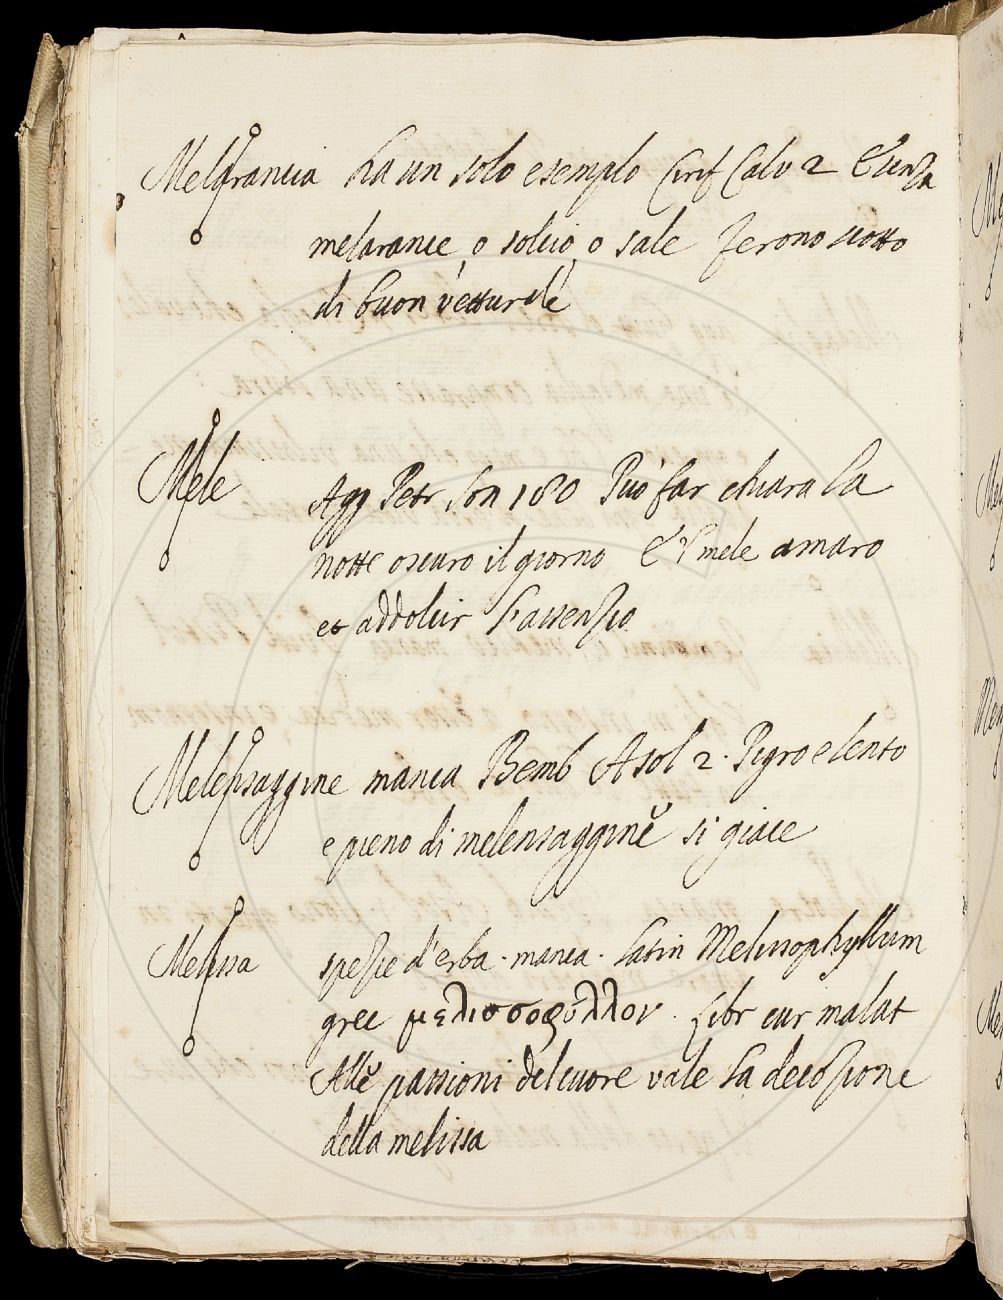 Melarancia ha un solo esempio Cirif Calv 2 E senza
melarance, o solcio, o sale ferono scotto
di buon vetturale
Mele Agg Petr Son 180 Può far chiara la
notte oscuro il giorno E 'l mele amaro
et addolcir l'assenzio
Melensaggine manca Bemb Asol 2. Pigro e lento
e pieno di melensaggine si giace
Melissa spezie d'erba. manca. latin Melissophyllum
grec μελισσοφυλλον. Libr cur malat
Alle passioni del cuore vale la decozione
della melissa